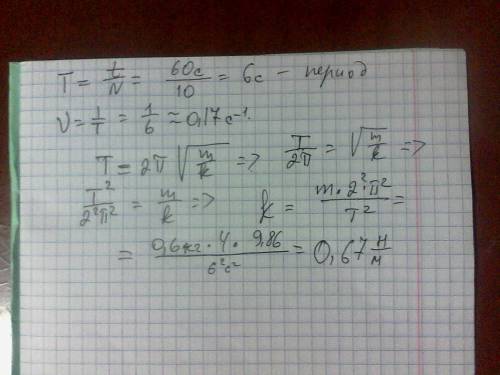 T = t/N = 60с/10 = 6с – период
ν = 1/T = 1/6 ≈ 0,17 с⁻¹.
T = 2π√(m/k) => T/2π = √(m/k) =>
T²/2²π² = m/k => k = m·2²π²/T² =
= 0,6кг·4·9,86/6²с² = 0,67 Н/м